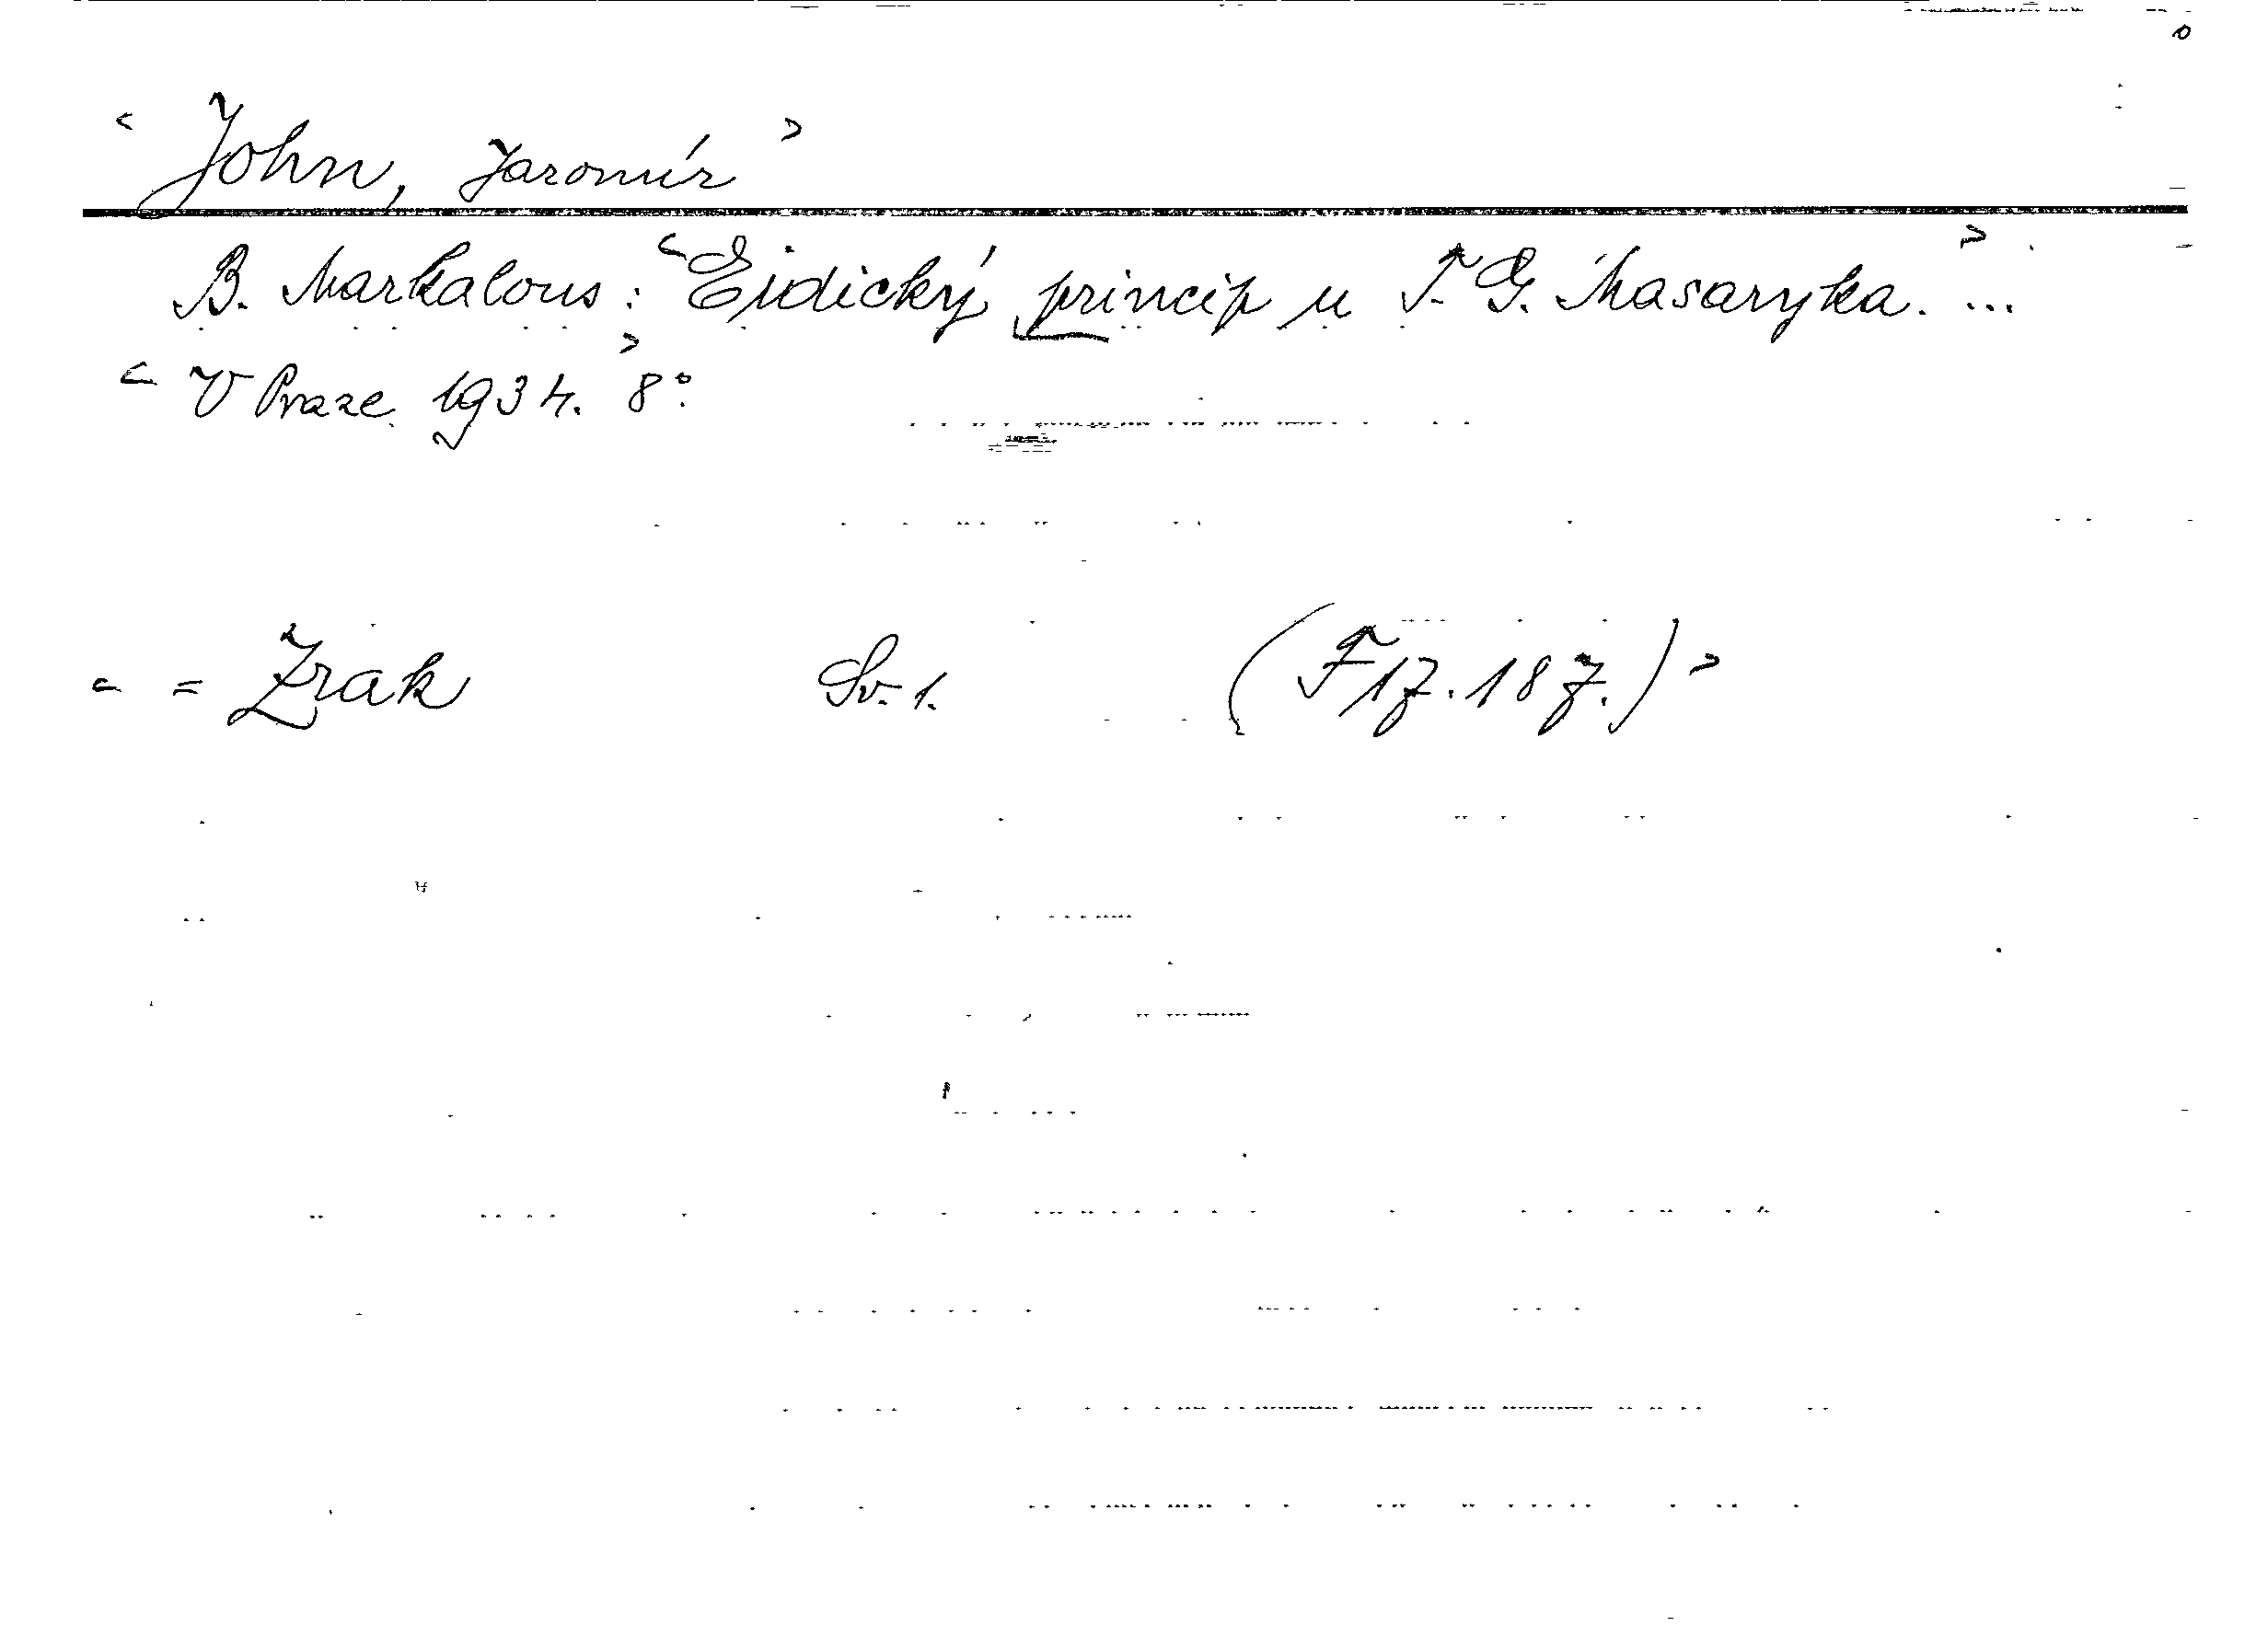 < John, Jaromír >
B. Markalous: <Eidický princip u T. G. Masaryka. ...>
< V Praze 1934. > 8°.
< = Zrak Sv. 1. (F 17.187.) >